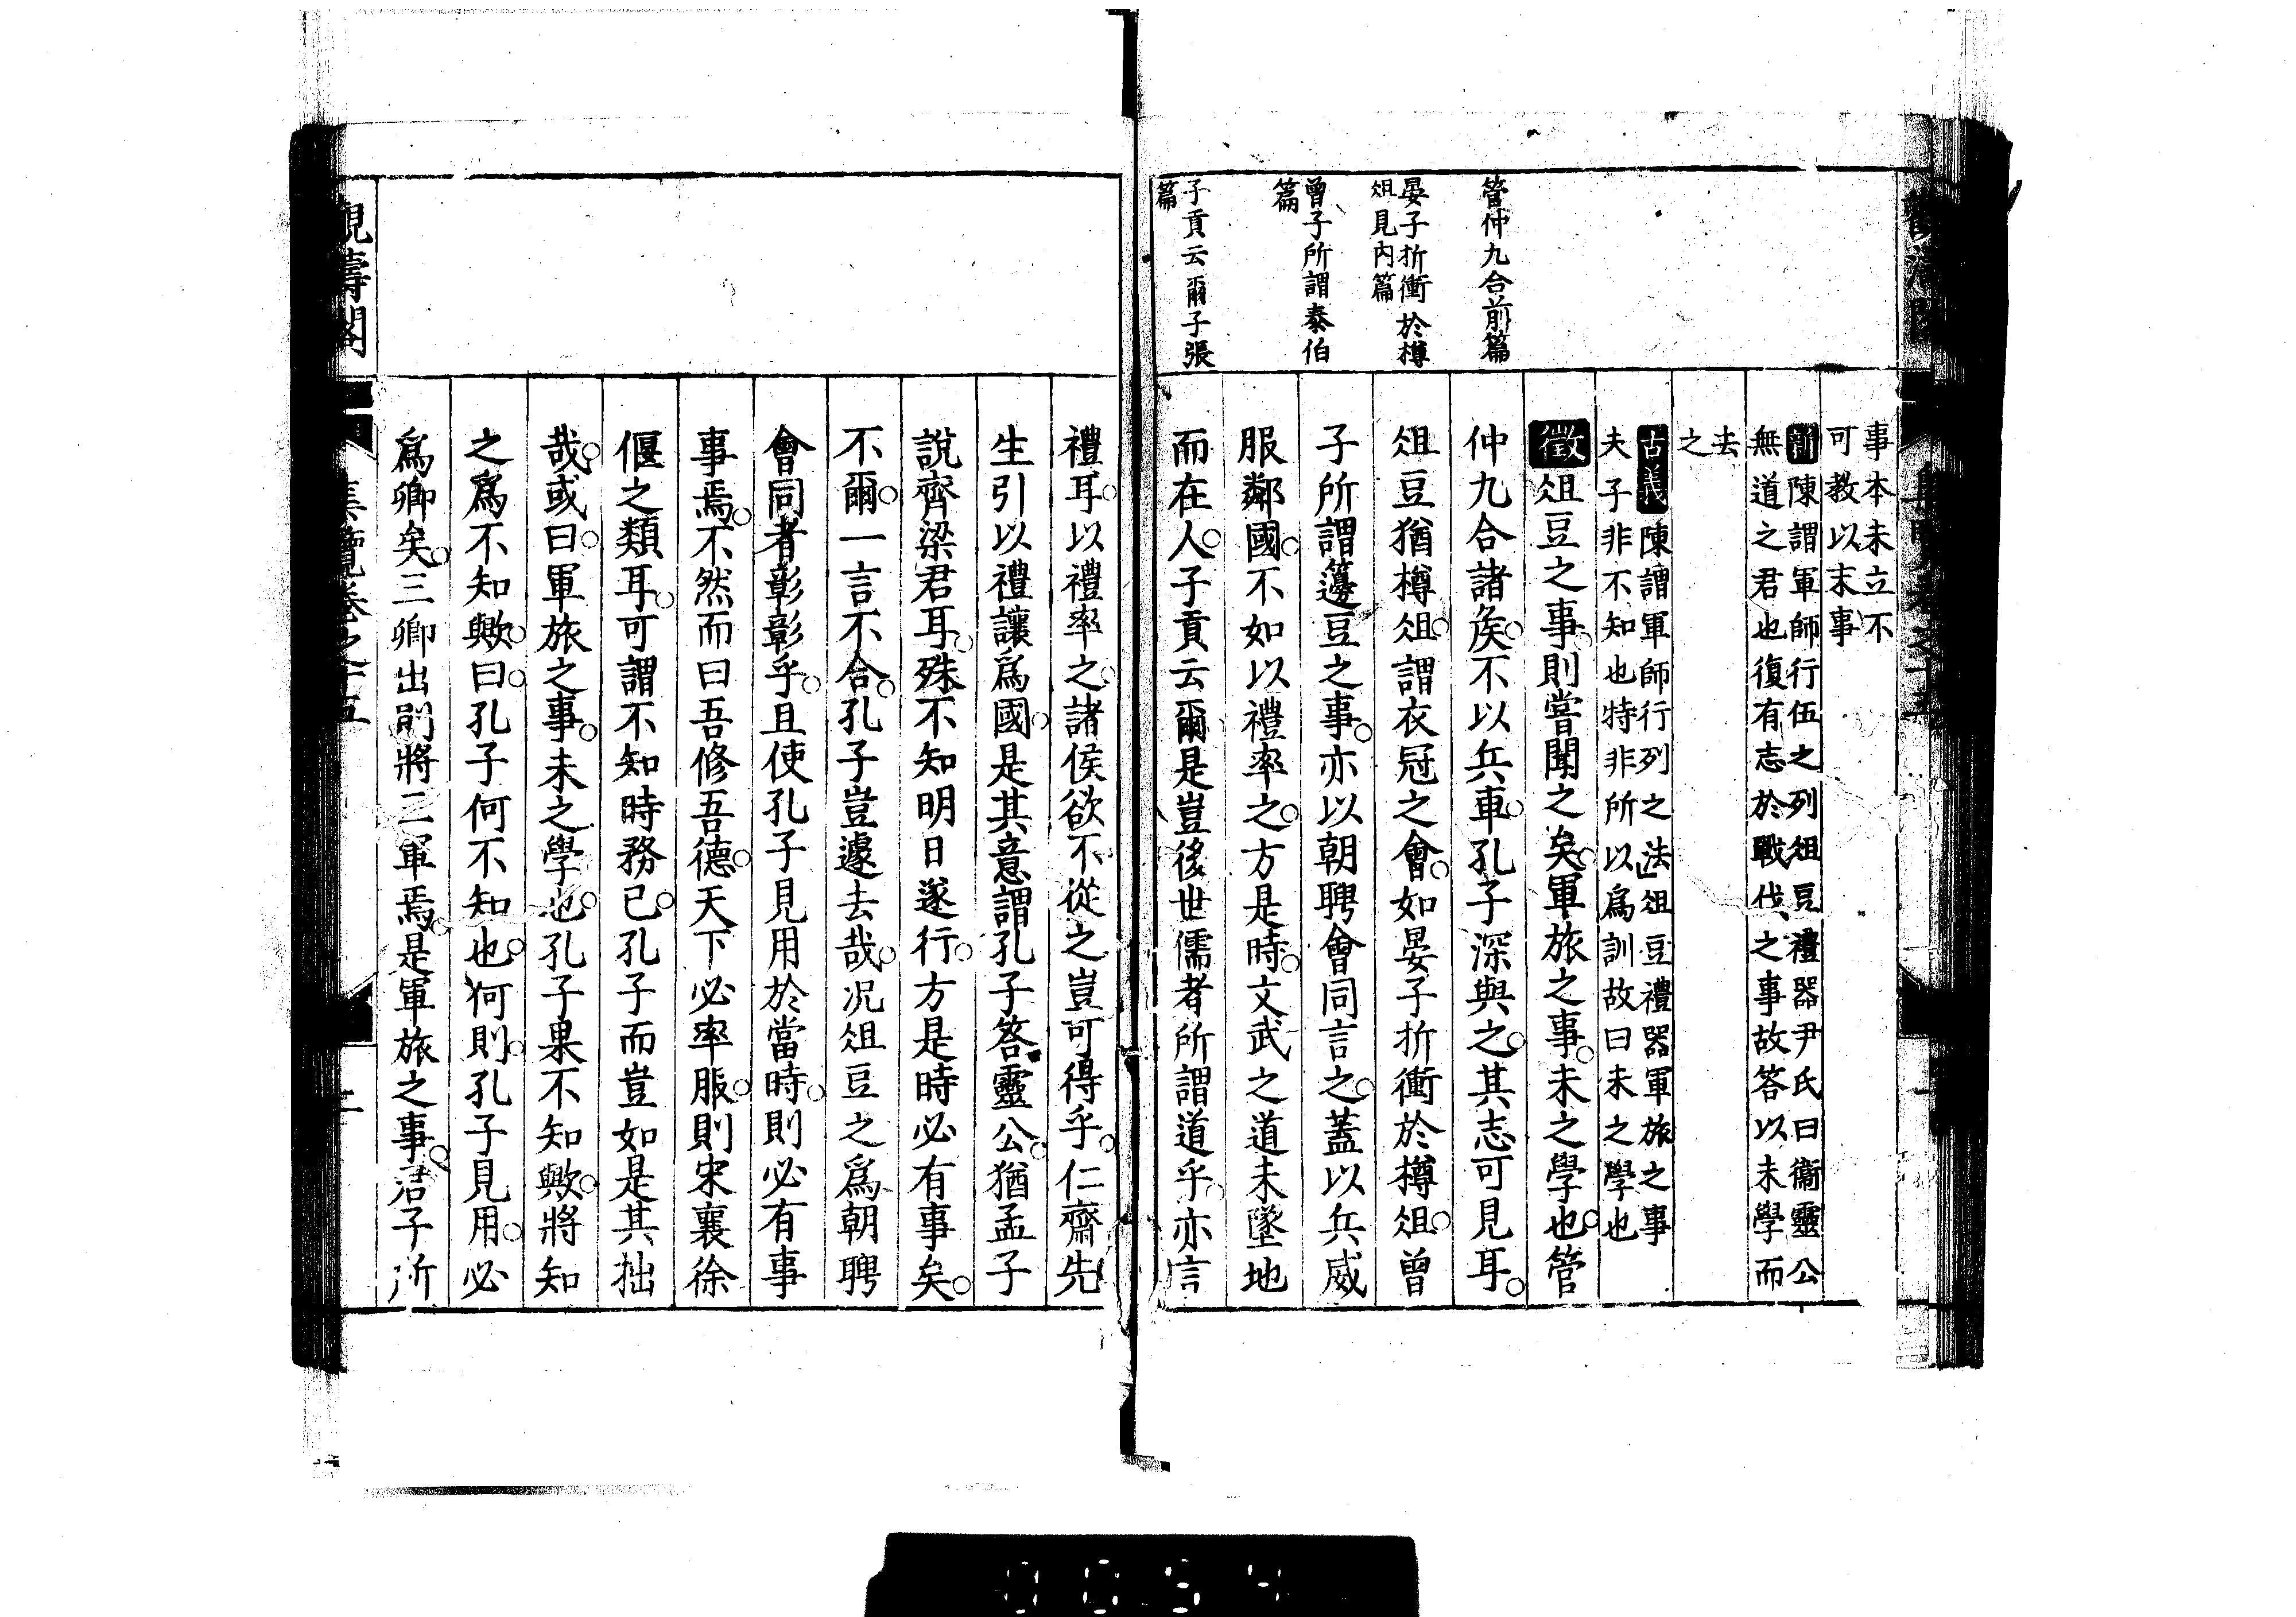 管仲九合前篇
晏子折衝於樽
俎見內篇
曾子所謂泰伯
篇
子貢云爾子張
篇
事本未立不
可教以末事
新陳謂軍師行伍之列俎豆禮器尹氏曰衞靈公
無道之君也復有志於戰伐之事故答以未學而
去
之
古義陳謂軍師行列之法俎豆禮器軍旅之事
夫子非不知也特非所以爲訓故曰未之學也
徵俎豆之事則嘗聞之矣軍旅之事未之學也管
仲九合諸侯不以兵車孔子深與之其志可見耳
俎豆猶樽俎謂衣冠之會如晏子折衝於樽俎曾
子所謂籩豆之事亦以朝聘會同言之蓋以兵威
服鄰國不如以禮率之方是時文武之道未墜地
而在人子貢云爾是豈後世儒者所謂道乎亦言
禮耳以禮率之諸侯欲不從之豈可得乎仁齋先
生引以禮讓爲國是其意謂孔子答靈公猶孟子
說齊梁君耳殊不知明日遂行方是時必有事矣
不爾一言不合孔子豈遽去哉况俎豆之爲朝聘
會同者彰彰乎且使孔子見用於當時則必有事
事焉不然而曰吾修吾德天下必率服則宋襄徐
偃之類耳可謂不知時務已孔子而豈如是其拙
哉或曰軍旅之事未之學也孔子果不知歟將知
之爲不知歟曰孔子何不知也何則孔子見用必
爲卿矣三卿出則將三軍焉是軍旅之事君子所
觀濤閣
集覽卷之十五
二